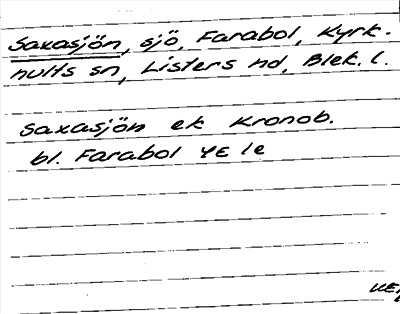 Saxasjön, sjö, Farabol, Kyrk-
hults sn, Listers hd, Blek. l.
Saxasjön ek Kronob.
bl. Farabol 4E le